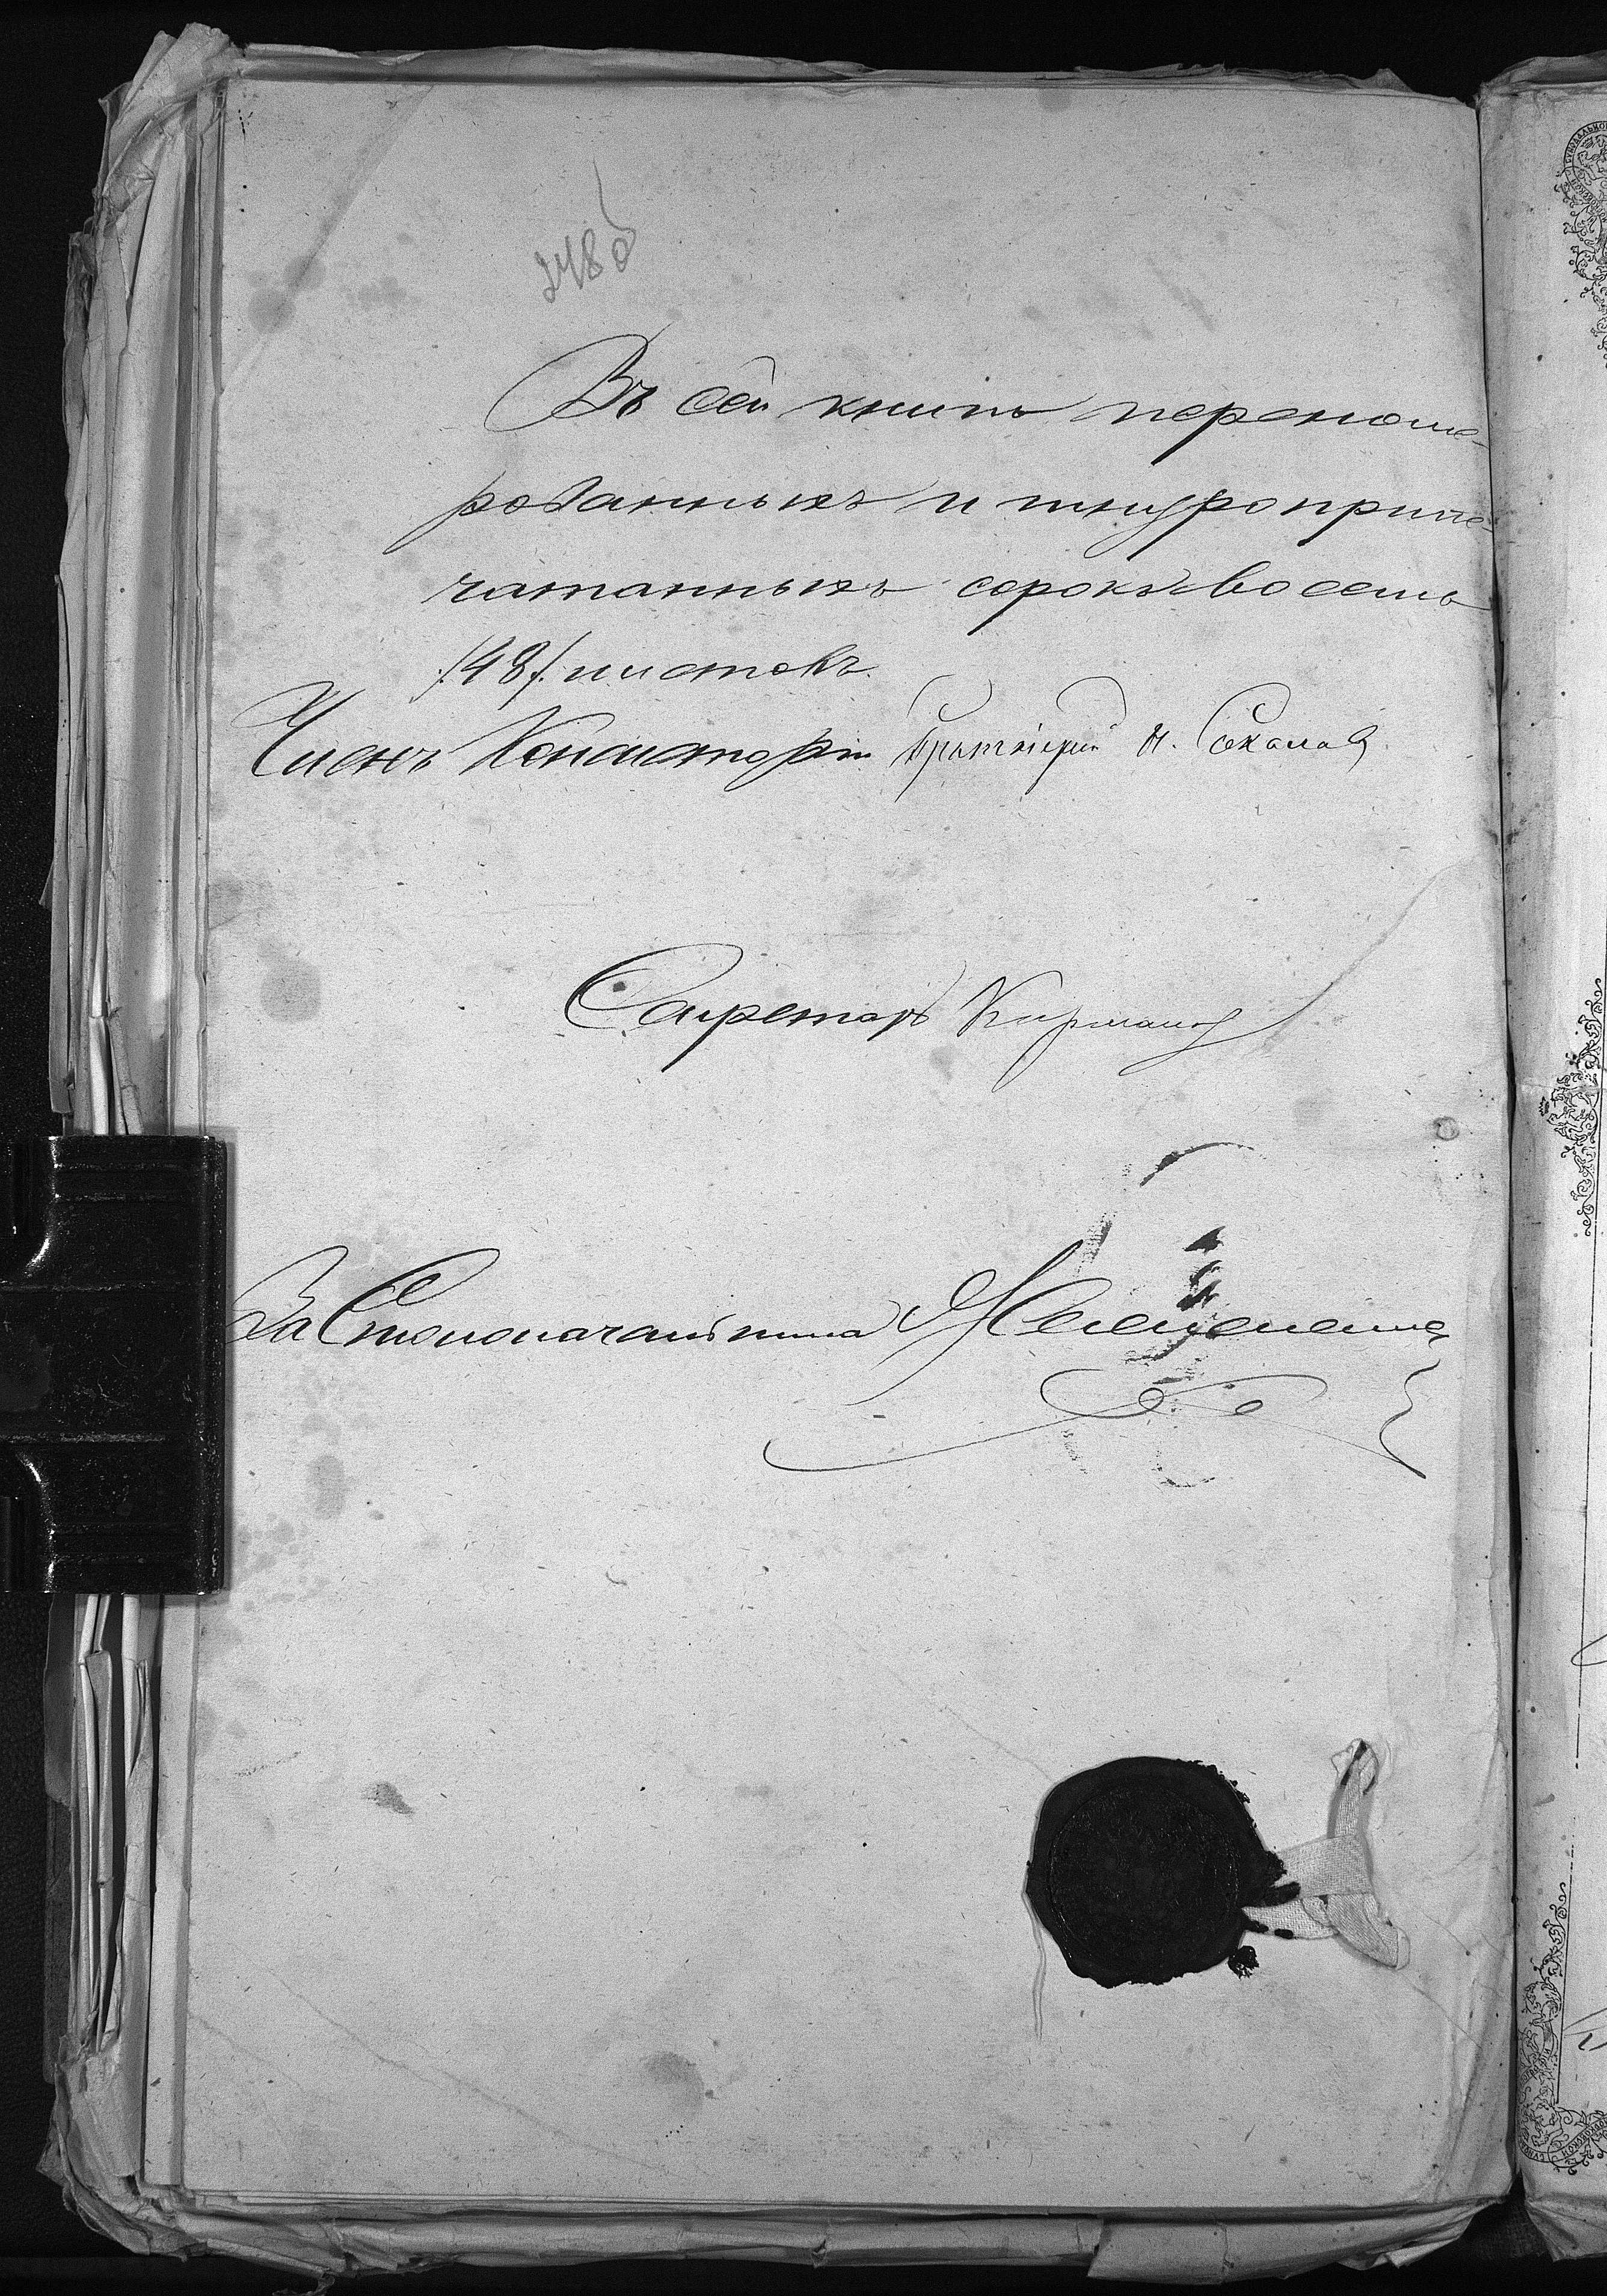 248 об
Въ сей книгѣ перенуме-
рованныхъ и шнуроприпе-
чатанныхъ сорокъ восемь
/48/ листовъ.
Членъ Консисторіи Протоіерей Н. Соколовъ
Секретарь
За Столоначальника